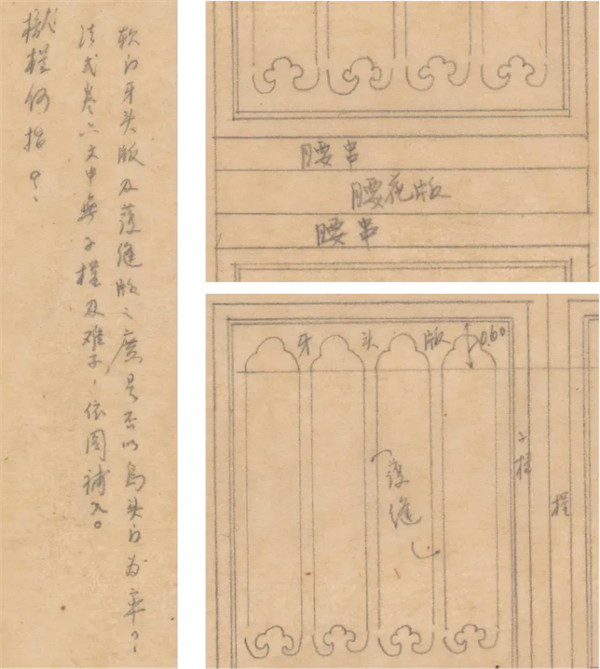 软门牙头版及護缝版之廣是否以烏头门为率？
法式卷六文中無子桯及难子，依图補入。
攏桯何指？
腰串
腰花版
腰串
牙头版
0.60
護缝
子桯
桯